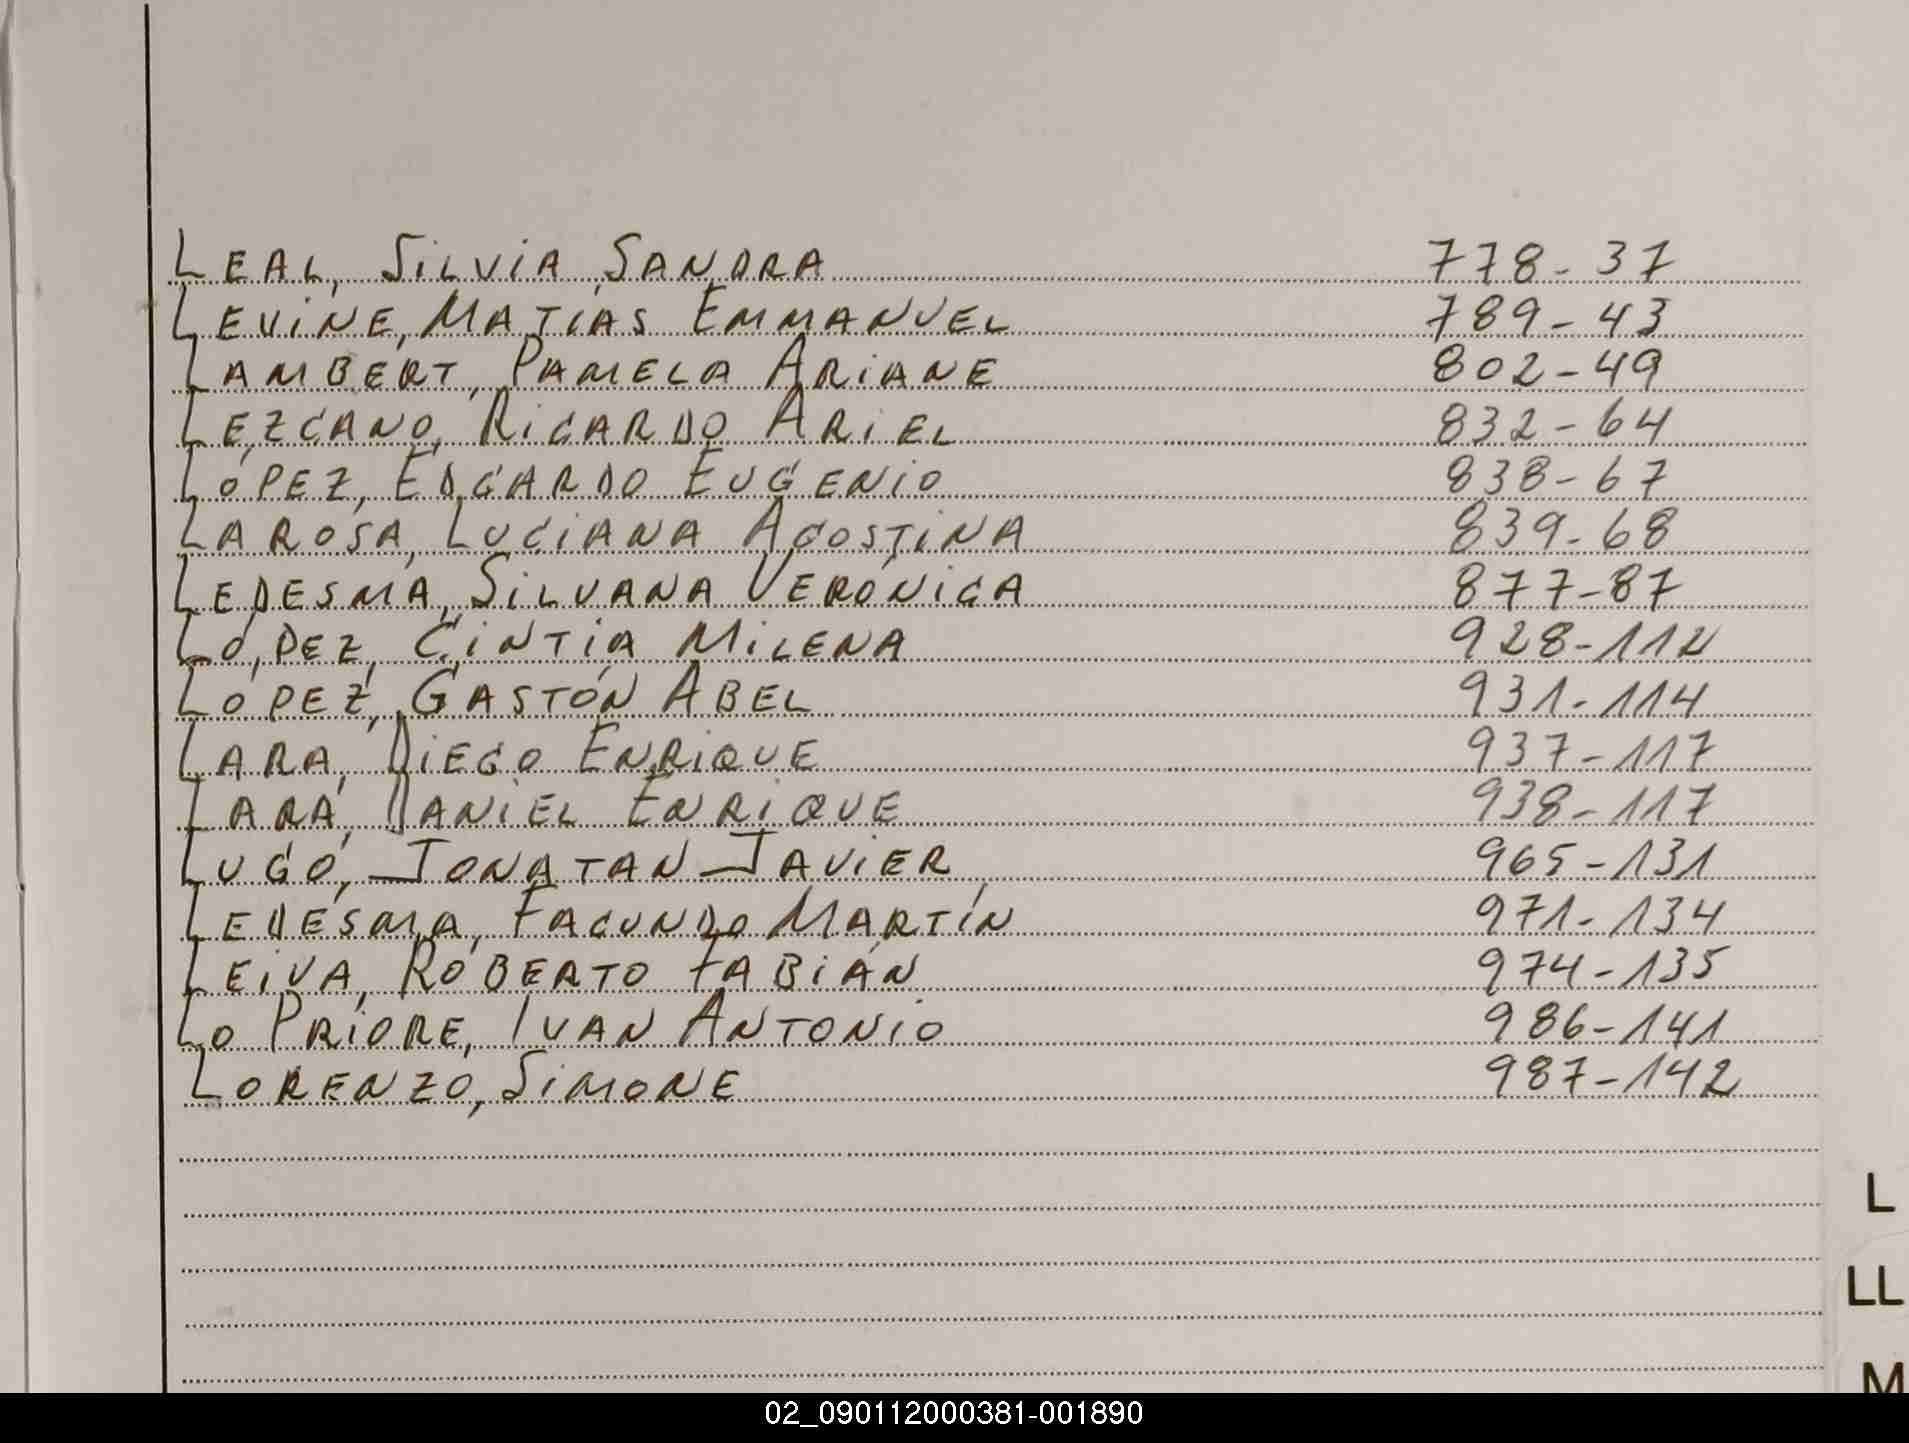 LEAL, SILVIA SANDRA 778-37
LEVINE, MATÍAS EMMANUEL 789-43
LAMBERT, PAMELA ARIANE 802-49
LEZCANO, RICARDO ARIEL 832-64
LÓPEZ, EDGARDO EUGENIO 838-67
LA ROSA, LUCIANA AGOSTINA 839-68
LEDESMA, SILVANA VERÓNICA 877-87
LÓPEZ, CINTIA MILENA 928-112
LÓPEZ, GASTÓN ABEL 931-114
LARA, DIEGO ENRIQUE 937-117
LARA, DANIEL ENRIQUE 938-117
LUGO, JONATAN JAVIER 965-131
LEDESMA, FACUNDO MARTÍN 971-134
LEIVA, ROBERTO FABIÁN 974-135
LO PRIORE, IVAN ANTONIO 986-141
LORENZO, SIMONE 987-142
L
LL
M
02_090112000381-001890